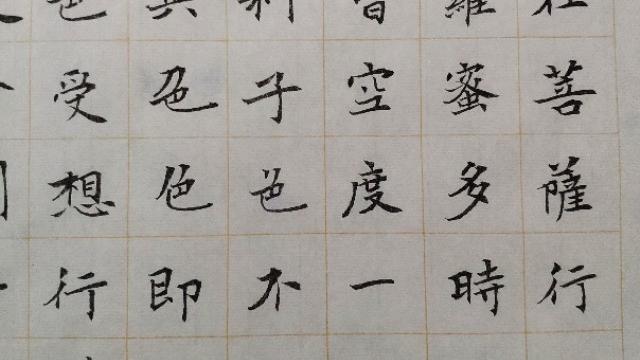 在菩薩行
羅蜜多時
皆空度一
利子色不
異色色即
色受想行